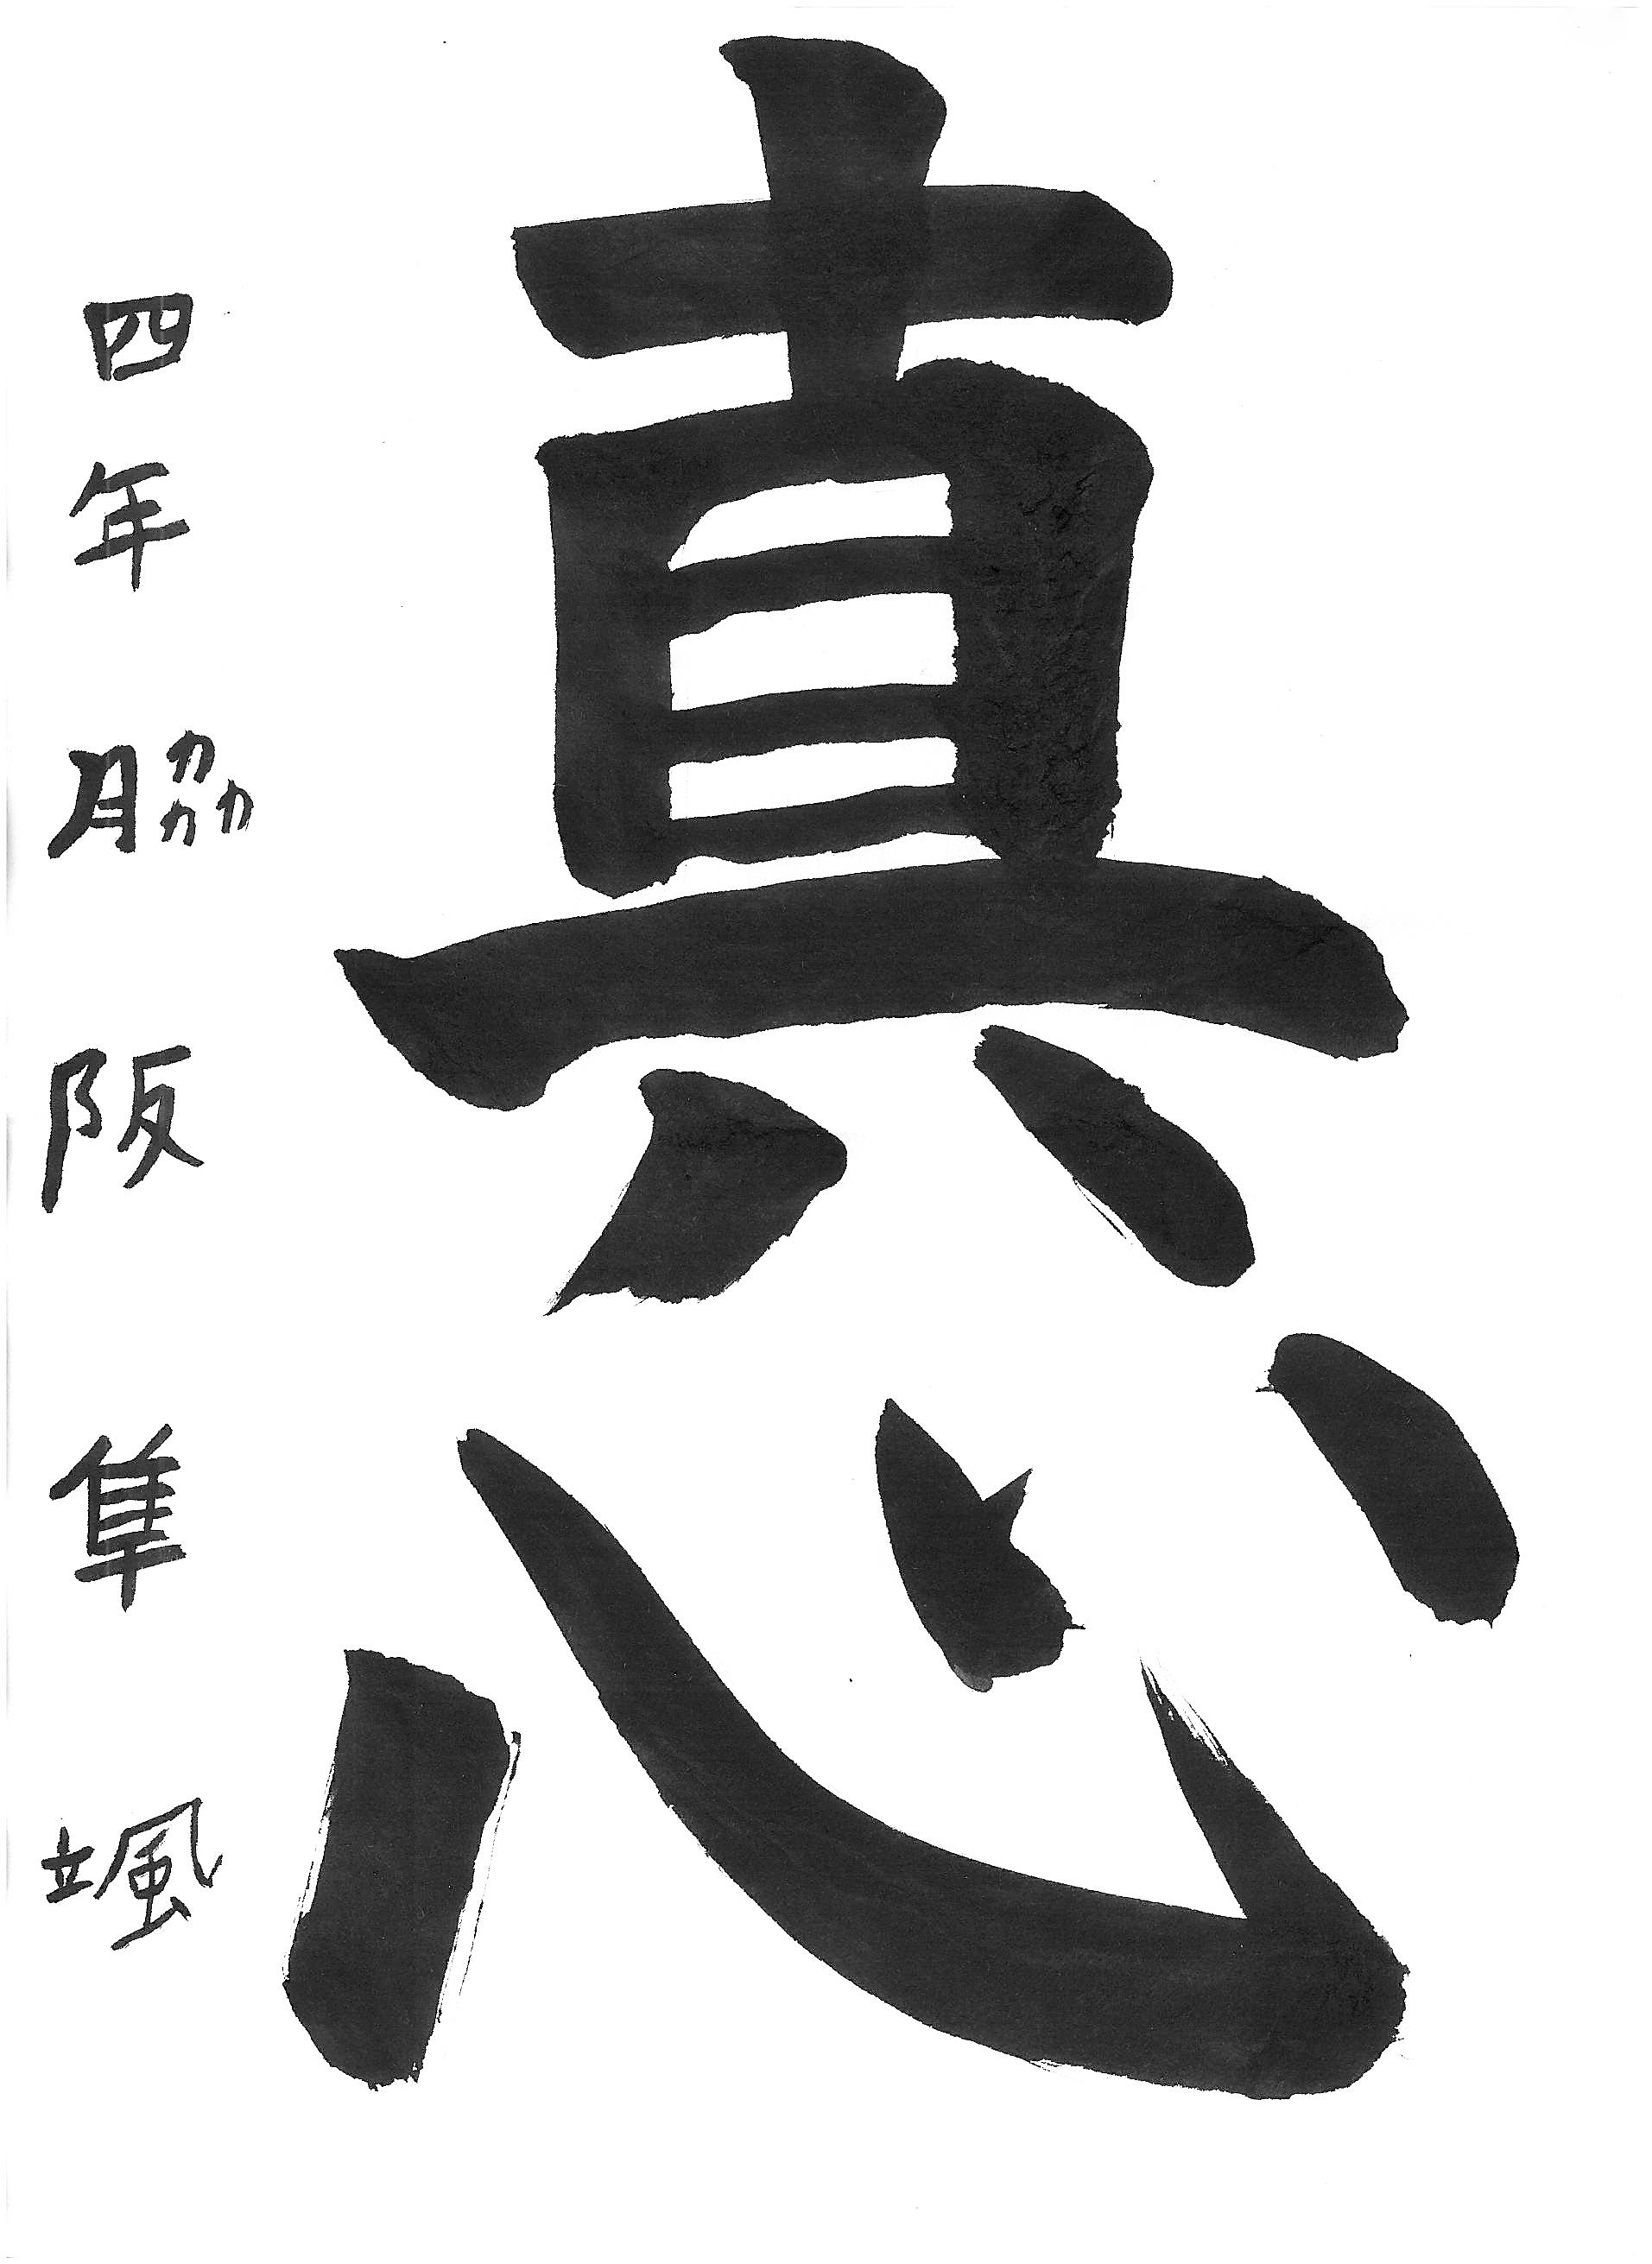 真心
四年 脇阪隼颯